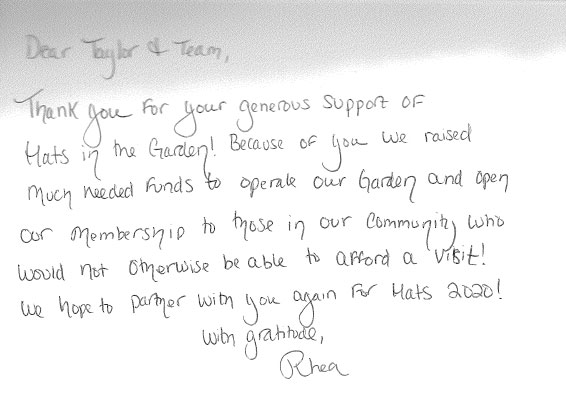 Dear Taylor & Team,
Thank you for your generous support of
Hats in the Garden! Because of you we raised
much needed funds to operate our Garden and open
our membership to those in our community who
would not otherwise be able to afford a visit!
We hope to partner with you again for Hats 2020!
with gratitude,
Rhea